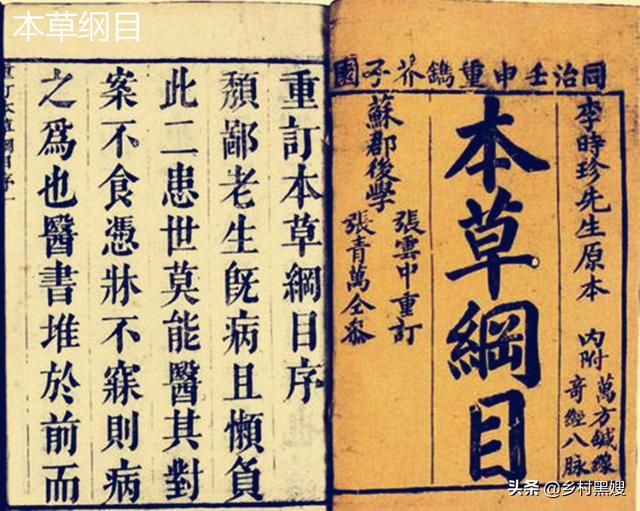 本草纲目
同治壬申重鐫芥子園
李時珍先生原本
內附
萬方鍼線
奇經八脉
本草綱目
蘇郡後學
張雲中重訂
張青萬仝參
重訂本草綱目序
頹鄙老生旣病且懶負
此二患世莫能醫其對
案不食憑牀不寐則病
之爲也醫書堆於前而
重訂本草綱目序
头条 @乡村黑嫂